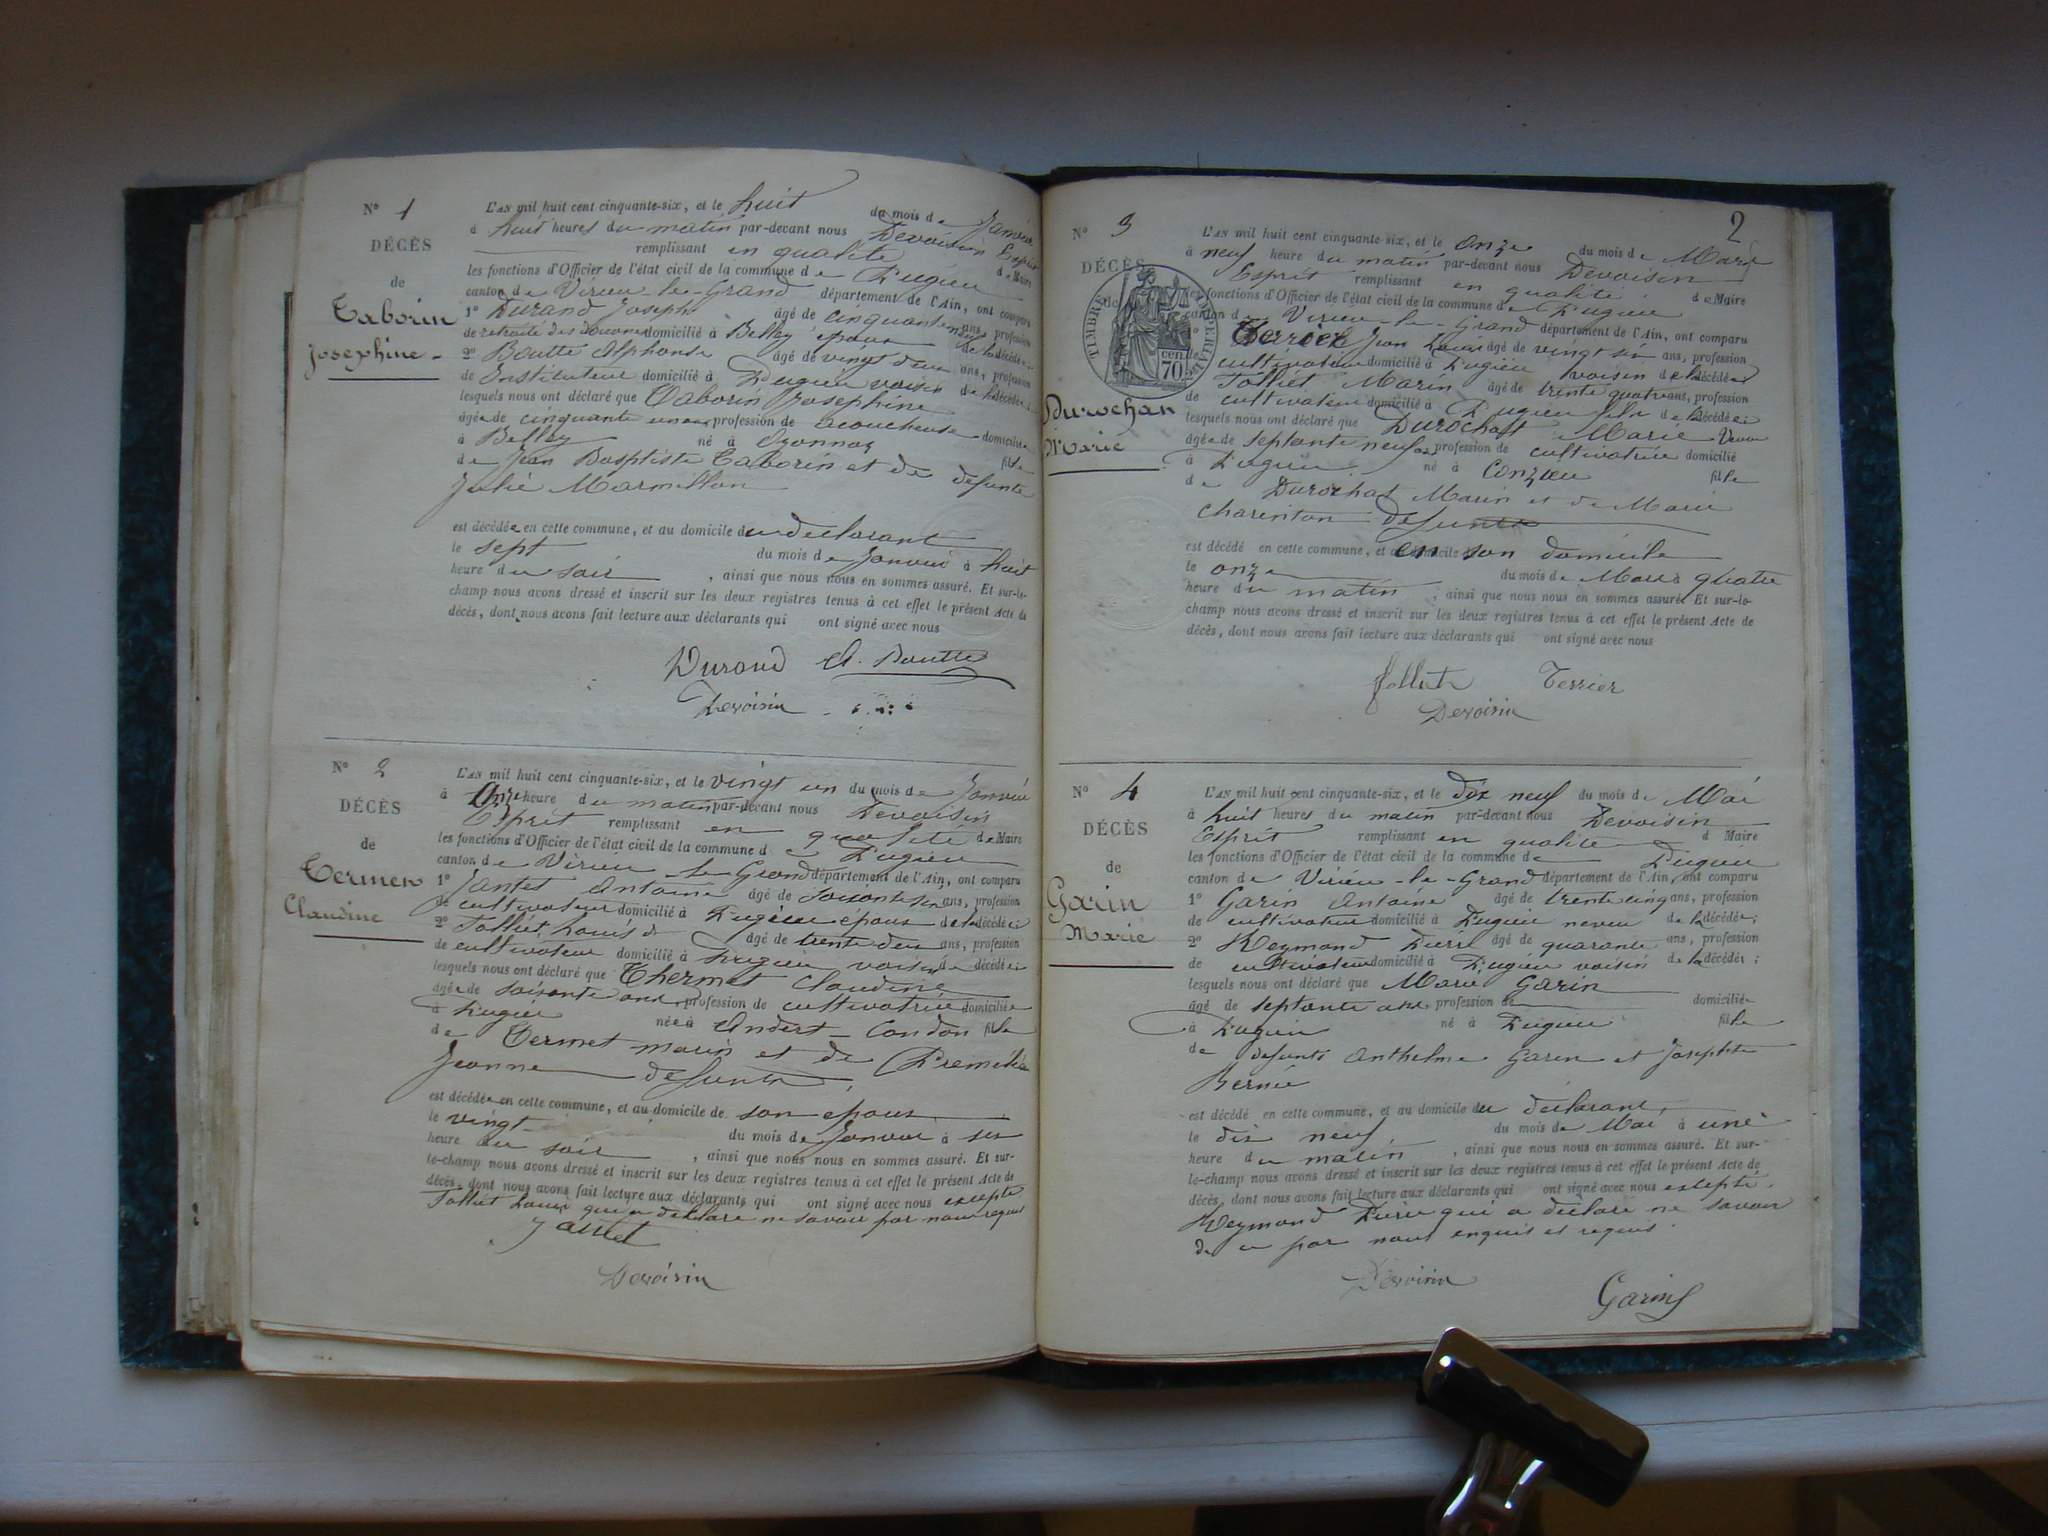 N° 1
DÉCÈS
de
Taborin
Josephine
L'AN mil huit cent cinquante-six, et le huit du mois de Janvier
à huit heures du matin par-devant nous Devoisin Esprit
remplissant en qualité de Maire
les fonctions d'Officier de l'état civil de la commune de Pugieu
canton de Virieu-le-Grand département de l'Ain, ont comparu
1° Durand Joseph âgé de cinquante ans, profession
de retraité des douanes domicilié à Belley époux de la décédée
2° Boutte Alphonse âgé de vingt deux ans, profession
de Instituteur domicilié à Pugieu voisin de la décédée
lesquels nous ont déclaré que Taborin Josephine
âgée de cinquante un ans profession de acoucheuse domiciliée
à Belley né à Oyonnax fille
de Jean Baptiste Taborin et de defunte
Julie Marmillon
est décédée en cette commune, et au domicile du declarant
le sept du mois de Janvier à huit
heure du soir, ainsi que nous nous en sommes assuré. Et sur-le-
champ nous avons dressé et inscrit sur les deux registres tenus à cet effet le présent Acte de
décès, dont nous avons fait lecture aux déclarants qui ont signé avec nous
Durand A. Boutte
Devoisin
N° 2
DÉCÈS
de
Termet
Claudine
L'AN mil huit cent cinquante-six, et le vingt un du mois de Janvier
à Onze heure du matin par-devant nous Devoisin
Esprit remplissant en qualité de Maire
les fonctions d'Officier de l'état civil de la commune de Pugieu
canton de Virieu-le-Grand département de l'Ain, ont comparu
1° Jantet Antoine âgé de soixante ans, profession
de cultivateur domicilié à Pugieu époux de la décédée
2° Tolliet Louis âgé de trente deux ans, profession
de cultivateur domicilié à Pugieu voisin de décédée
lesquels nous ont déclaré que Thermet Claudine
âgée de soixante ans profession de cultivatrice domiciliée
à Pugieu née à Andert-Condon fille
de Termet Marin et de Premilieu
Jeanne defunts
est décédée en cette commune, et au domicile de son epoux
le vingt du mois de Janvier à six
heure du soir, ainsi que nous nous en sommes assuré. Et sur-
le-champ nous avons dressé et inscrit sur les deux registres tenus à cet effet le présent Acte de
décès, dont nous avons fait lecture aux déclarants qui ont signé avec nous excepté
Tolliet Louis qui a déclaré ne savoir par nous requis
Jantet
Devoisin
2
N° 3
DÉCÈS
de
TIMBRE IMPERIAL
70 cen.
Durochat
Marie
L'AN mil huit cent cinquante-six, et le onze du mois de Mars
à neuf heure du matin par-devant nous Devoisin
Esprit remplissant en qualité de Maire
les fonctions d'Officier de l'état civil de la commune de Pugieu
canton de Virieu-le-Grand département de l'Ain, ont comparu
1° Terrier Jean Louis âgé de vingt six ans, profession
de cultivateur domicilié à Pugieu voisin de la décédée
Tolliet Marin âgé de trente quatre ans, profession
de cultivateur domicilié à Pugieu fils de la décédée
lesquels nous ont déclaré que Durochat Marie Veuve
âgée de septante neuf ans profession de cultivatrice domicilié
à Pugieu né à Conzieu fille
de Durochat Marin et de Marie
Charenton defunts
est décédé en cette commune, et en son domicile
le onze du mois de Mars à quatre
heure du matin, ainsi que nous nous en sommes assuré. Et sur-le-
champ nous avons dressé et inscrit sur les deux registres tenus à cet effet le présent Acte de
décès, dont nous avons fait lecture aux déclarants qui ont signé avec nous
Tolliet Terrier
Devoisin
N° 4
DÉCÈS
de
Garin
Marie
L'AN mil huit cent cinquante-six, et le dix neuf du mois de Mai
à huit heures du matin par-devant nous Devoisin
Esprit remplissant en qualité d Maire
les fonctions d'Officier de l'état civil de la commune de Pugieu
canton de Virieu-le-Grand département de l'Ain, ont comparu
1° Garin Antoine âgé de trente cinq ans, profession
de cultivateur domicilié à Pugieu neveu de la décédée;
2° Reymond Pierre âgé de quarante ans, profession
de cultivateur domicilié à Pugieu voisin de la décédée;
lesquels nous ont déclaré que Marie Garin
âgé de septante ans profession de domiciliée
à Pugieu né à Pugieu fille
de defunts Anthelme Garin et Josephte
Bernié
est décédé en cette commune, et au domicile du déclarant
le dix neuf du mois de Mai à une
heure du matin, ainsi que nous nous en sommes assuré. Et sur-
le-champ nous avons dressé et inscrit sur les deux registres tenus à cet effet le présent Acte de
décès, dont nous avons fait lecture aux déclarants qui ont signé avec nous excepté
Reymond Pierre qui a déclaré ne savoir
de ce par nous enquis et requis.
Devoisin
Garin